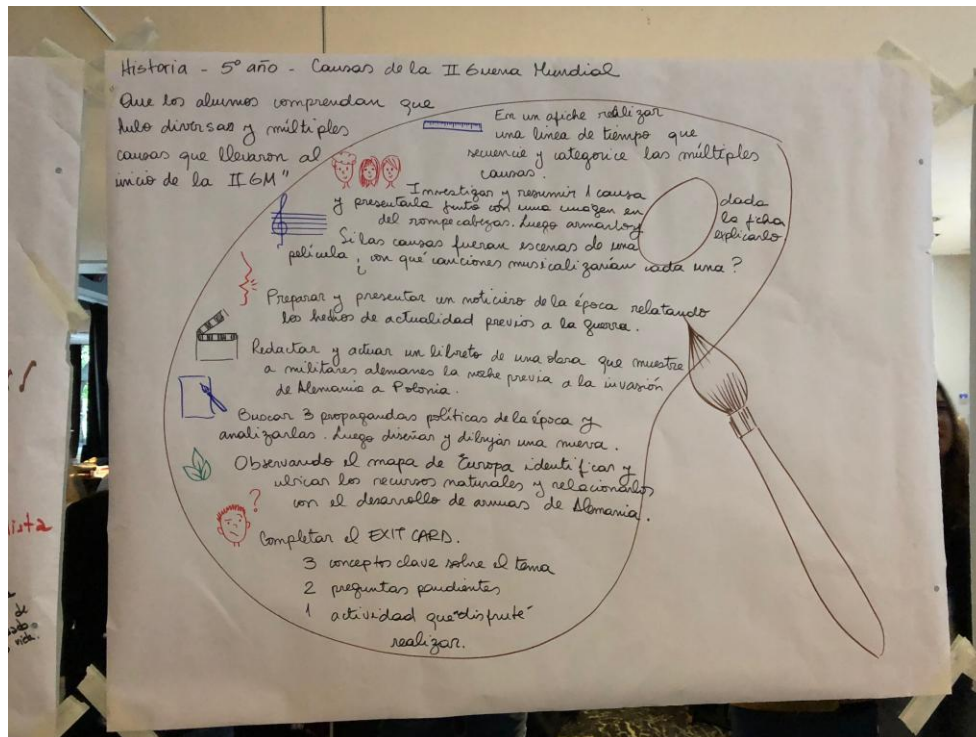 Historia - 5° año - Causas de la II Guerra Mundial
"Que los alumnos comprendan que
hubo diversas y múltiples
causas que llevaron al
inicio de la II GM"
En un afiche realizar
una línea de tiempo que
secuencie y categorice las múltiples
causas.
Investigar y resumir 1 causa dada
y presentarla junto con una imagen en la ficha
del rompecabezas. Luego armarlos y explicarlo
Si las causas fueran escenas de una
película, ¿con qué canciones musicalizarían cada una?
Preparar y presentar un noticiero de la época relatando
los hechos de actualidad previos a la guerra.
Redactar y actuar un libreto de una obra que muestre
a militares alemanes la noche previa a la invasión
de Alemania a Polonia.
Buscar 3 propagandas políticas de la época y
analizarlas. Luego diseñar y dibujar una nueva.
Observando el mapa de Europa identificar y
ubicar los recursos naturales y relacionarlos
con el desarrollo de armas de Alemania.
?
Completar el EXIT CARD.
3 conceptos clave sobre el tema
2 preguntas pendientes
1 actividad que "disfruté"
realizar.
ista
de
vida.